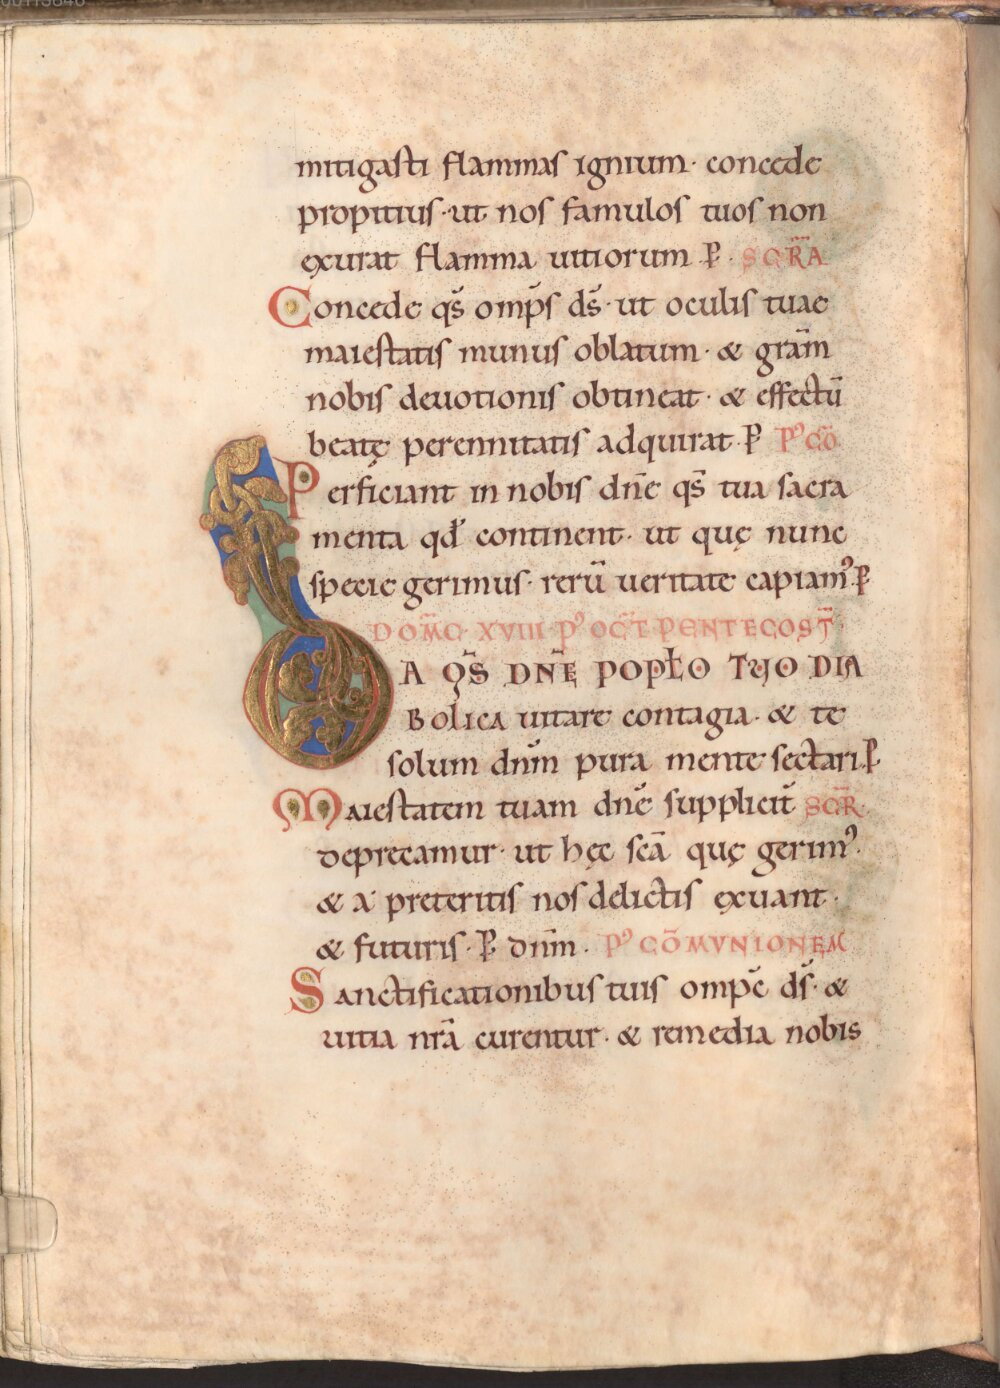 mitigasti flammas ignium· concede
propitius· ut nos famulos tuos non
exurat flamma uitiorum P̄· SCR̄A
Concede qs̄ omp̄s ds̄· ut oculis tuae
maiestatis munus oblatum· & grām
nobis deuotionis obtineat· & effectū
beatę perennitatis adquirat· P̄ Pꝰ CŌ
Perficiant in nobis dn̄e qs̄ tua sacra
menta qđ continent· ut quę nunc
specie gerimus· rerū ueritate capiamꝰ P̄
DOM̄C· XVIII Pꝰ OCT̄ PENTECOST̄
DA QS̄ DN̄E POPŁO TUO DIA
BOLICA uitare contagia· & te
solum dn̄m pura mente sectari P̄
Maiestatem tuam dn̄e supplicit̄ SCR̄
deprecamur· ut hęc sc̄ā quę gerimꝰ·
& a preteritis nos delictis exuant·
& futuris· P̄ dn̄m· Pꝰ CŌMVNIONEM
Sanctificationibus tuis omp̄c ds̄· &
uitia nr̄a curentur· & remedia nobis